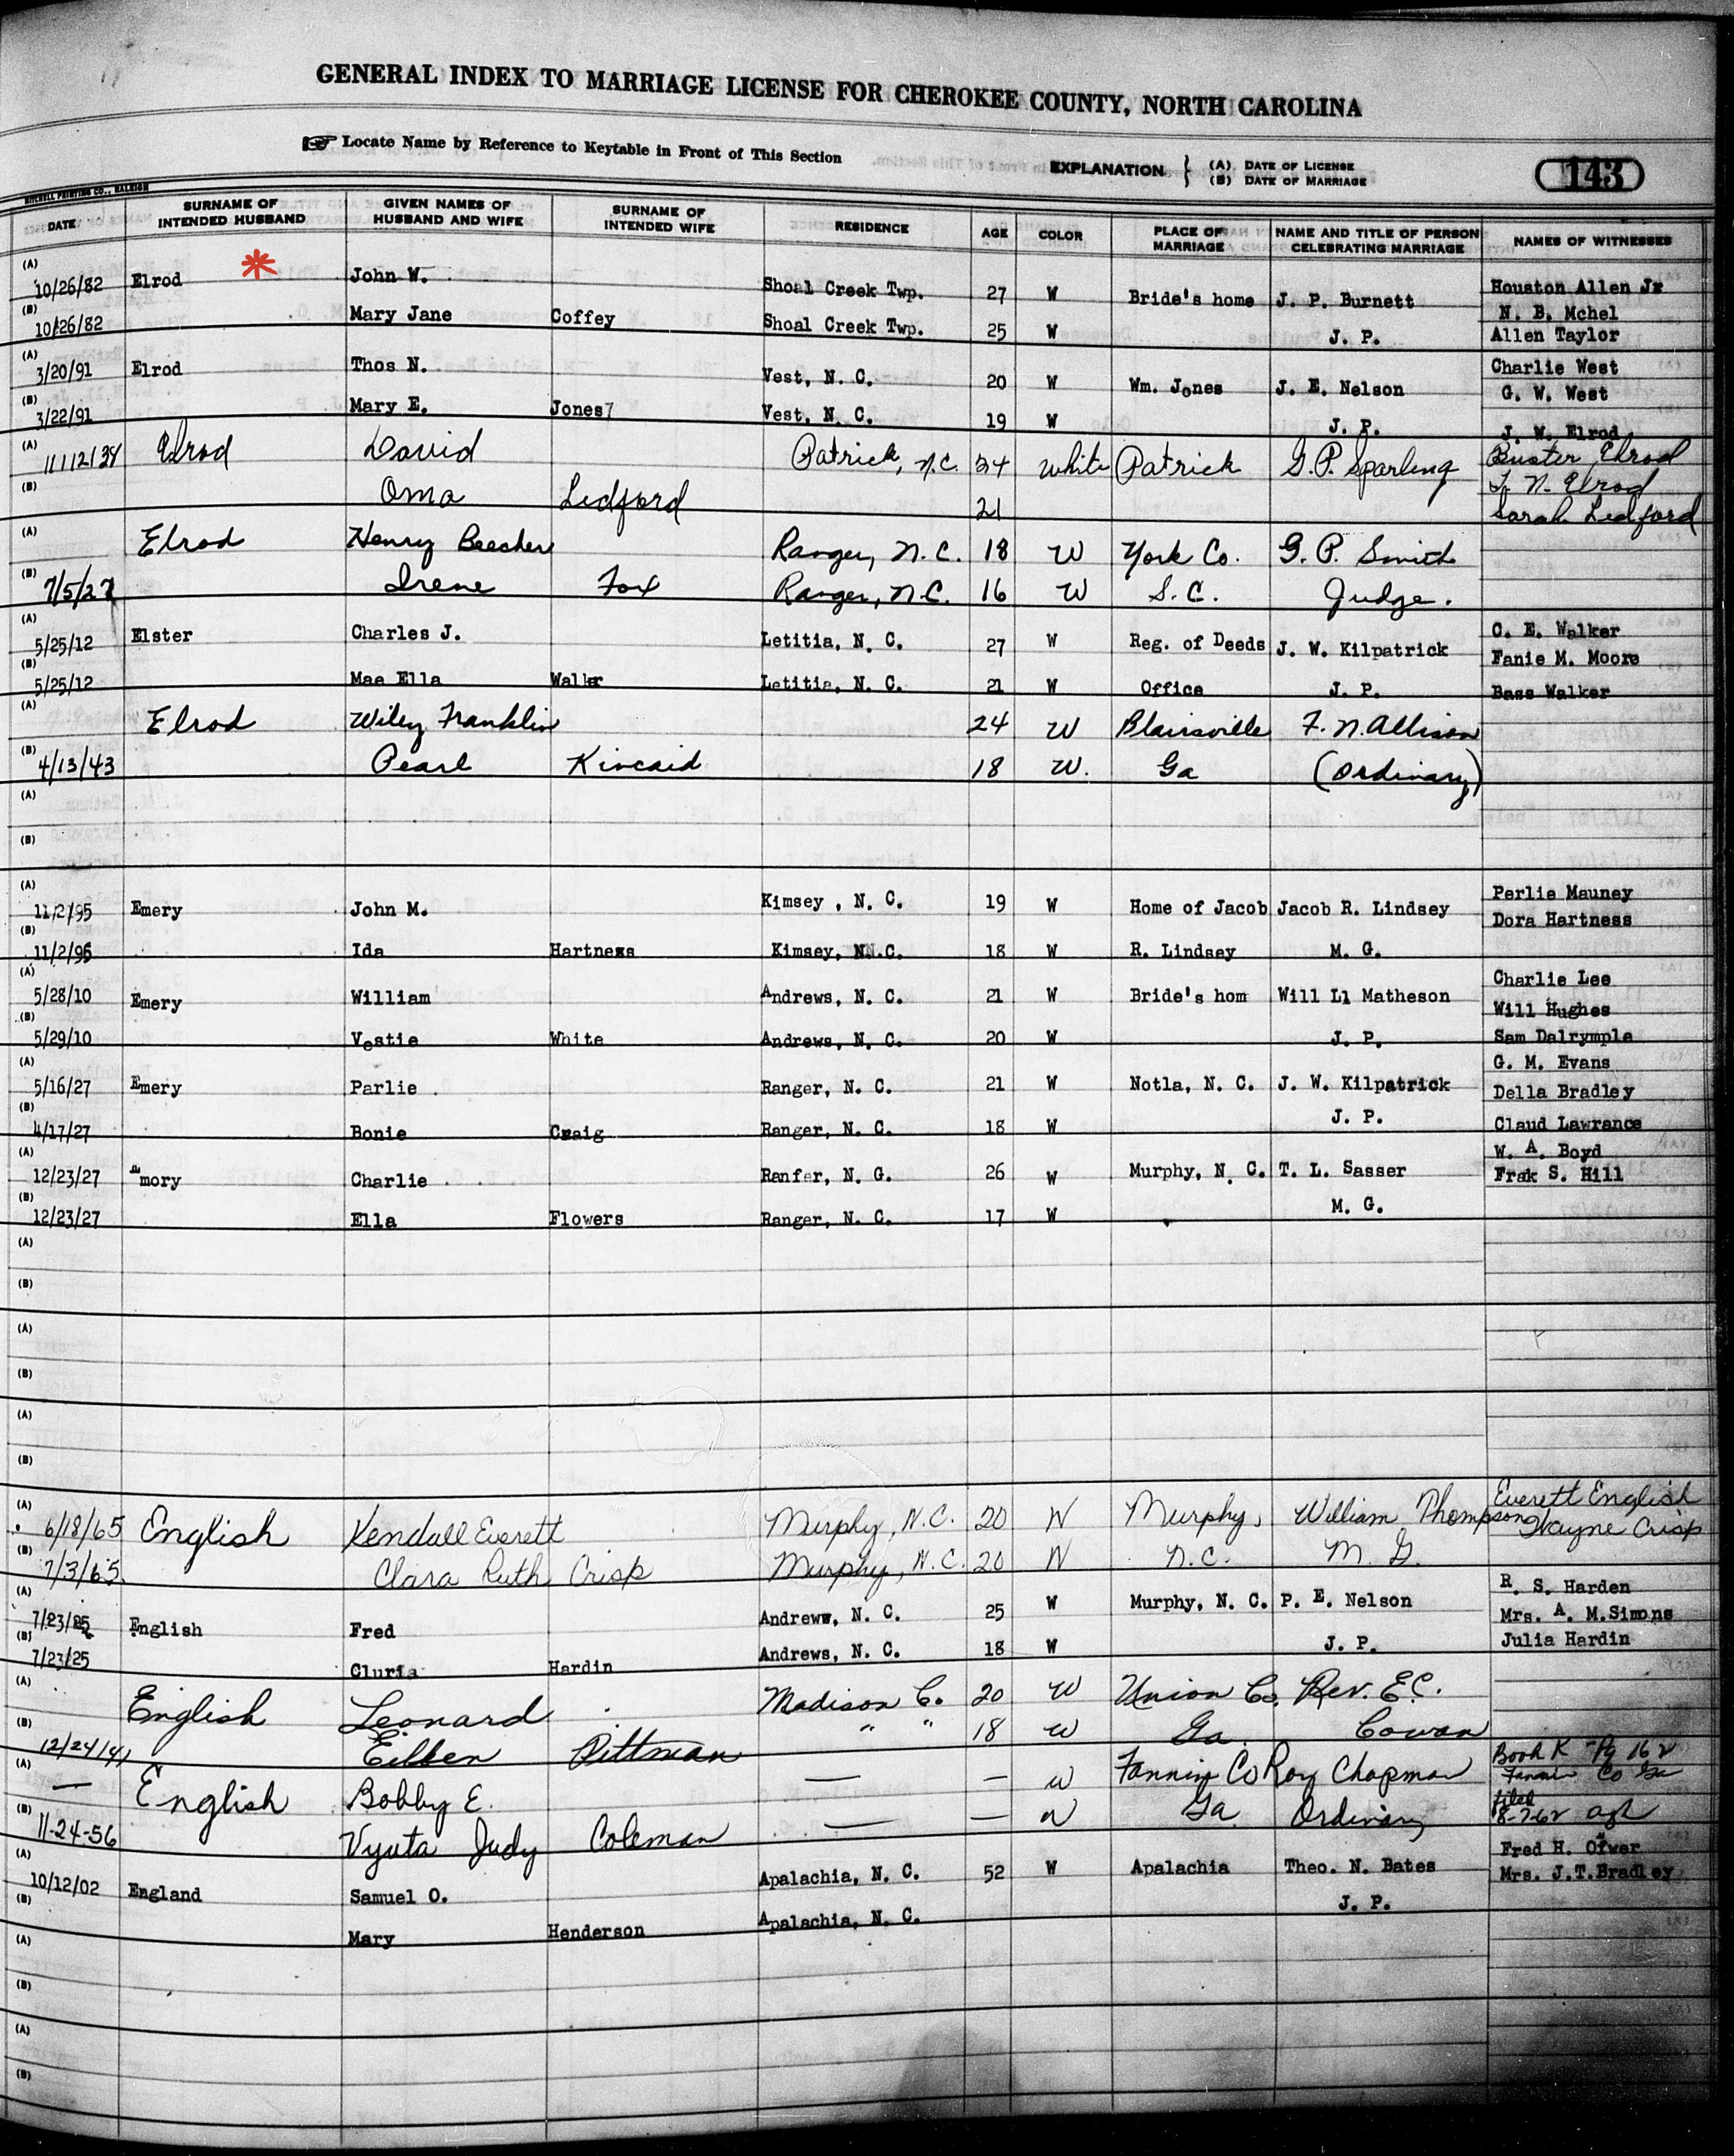 GENERAL INDEX TO MARRIAGE LICENSE FOR CHEROKEE COUNTY, NORTH CAROLINA
Locate Name by Reference to Keytable in Front of This Section
EXPLANATION } (A) DATE OF LICENSE
(B) DATE OF MARRIAGE
143
MITCHELL PRINTING CO., RALEIGH
DATE SURNAME OF INTENDED HUSBAND GIVEN NAMES OF HUSBAND AND WIFE SURNAME OF INTENDED WIFE RESIDENCE AGE COLOR PLACE OF MARRIAGE NAME AND TITLE OF PERSON CELEBRATING MARRIAGE NAMES OF WITNESSES
(A) 10/26/82 Elrod * John W. Shoal Creek Twp. 27 W Bride's home J. P. Burnett Houston Allen Jr
N. B. Mchel
(B) 10/26/82 Mary Jane Coffey Shoal Creek Twp. 25 W J. P. Allen Taylor
(A) 3/20/91 Elrod Thos N. Vest, N. C. 20 W Wm. Jones J. E. Nelson Charlie West
G. W. West
(B) 3/22/91 Mary E. Jones Vest, N. C. 19 W J. P. J. W. Elrod
(A) 11/12/34 Elrod David Patrick, N.C. 34 White Patrick G. P. Sparling Buster Elrod
T. N. Elrod
(B) Oma Ledford 21 Sarah Ledford
(A) Elrod Henry Beecher Ranger, N.C. 18 W York Co. G. P. Smith
(B) 7/5/27 Irene Fox Ranger, N.C. 16 W S.C. Judge.
(A) 5/25/12 Elster Charles J. Letitia, N. C. 27 W Reg. of Deeds J. W. Kilpatrick C. E. Walker
Fanie M. Moore
(B) 5/25/12 Mae Ella Walkr Letitia, N. C. 21 W Office J. P. Bass Walker
(A) Elrod Wiley Franklin 24 W Blairsville F. N. Allison
(B) 4/13/43 Pearl Kincaid 18 W. Ga (Ordinary)
(A)
(B)
(A) 11/2/95 Emery John M. Kimsey , N. C. 19 W Home of Jacob Jacob R. Lindsey Perlie Mauney
Dora Hartness
(B) 11/2/95 Ida Hartness Kimsey, N.C. 18 W R. Lindsey M. G.
(A) 5/28/10 Emery William Andrews, N. C. 21 W Bride's hom Will Ll Matheson Charlie Lee
Will Hughes
(B) 5/29/10 Vestie White Andrews, N. C. 20 W J. P. Sam Dalrymple
(A) 5/16/27 Emery Parlie Ranger, N. C. 21 W Notla, N. C. J. W. Kilpatrick G. M. Evans
Della Bradley
(B) 4/17/27 Bonie Craig Ranger, N. C. 18 W J. P. Claud Lawrance
(A) 12/23/27 Emory Charlie Ranfer, N. G. 26 W Murphy, N. C. T. L. Sasser W. A. Boyd
Frak S. Hill
(B) 12/23/27 Ella Flowers Ranger, N. C. 17 W M. G.
(A)
(B)
(A)
(B)
(A)
(B)
(A) 6/18/65 English Kendall Everett Murphy, N.C. 20 W Murphy, William Thompson Everett English
Wayne Crisp
(B) 7/3/65 Clara Ruth Crisp Murphy, N.C. 20 W N.C. M. G.
(A) 7/23/25 English Fred Andrews, N. C. 25 W Murphy, N. C. P. E. Nelson R. S. Harden
Mrs. A. M.Simons
(B) 7/23/25 Cluria Hardin Andrews, N. C. 18 W J. P. Julia Hardin
(A) English Leonard Madison Co. 20 W Union Co. Rev. E.C.
(B) 12/24/41 Eilben Pittman " " 18 W Ga. Cowan
(A) — English Bobby E. — — W Fannin Co Roy Chapman Book K - Pg 162
Fannin Co Ga
(B) 11-24-56 Vyuta Judy Coleman — — W Ga. Ordinary filed
8-7-62
(A) 10/12/02 England Samuel O. Apalachia, N. C. 52 W Apalachia Theo. N. Bates Fred H.
Mrs. J.T.Bradley
(B) Mary Henderson Apalachia, N. C. J. P.
(A)
(B)
(A)
(B)